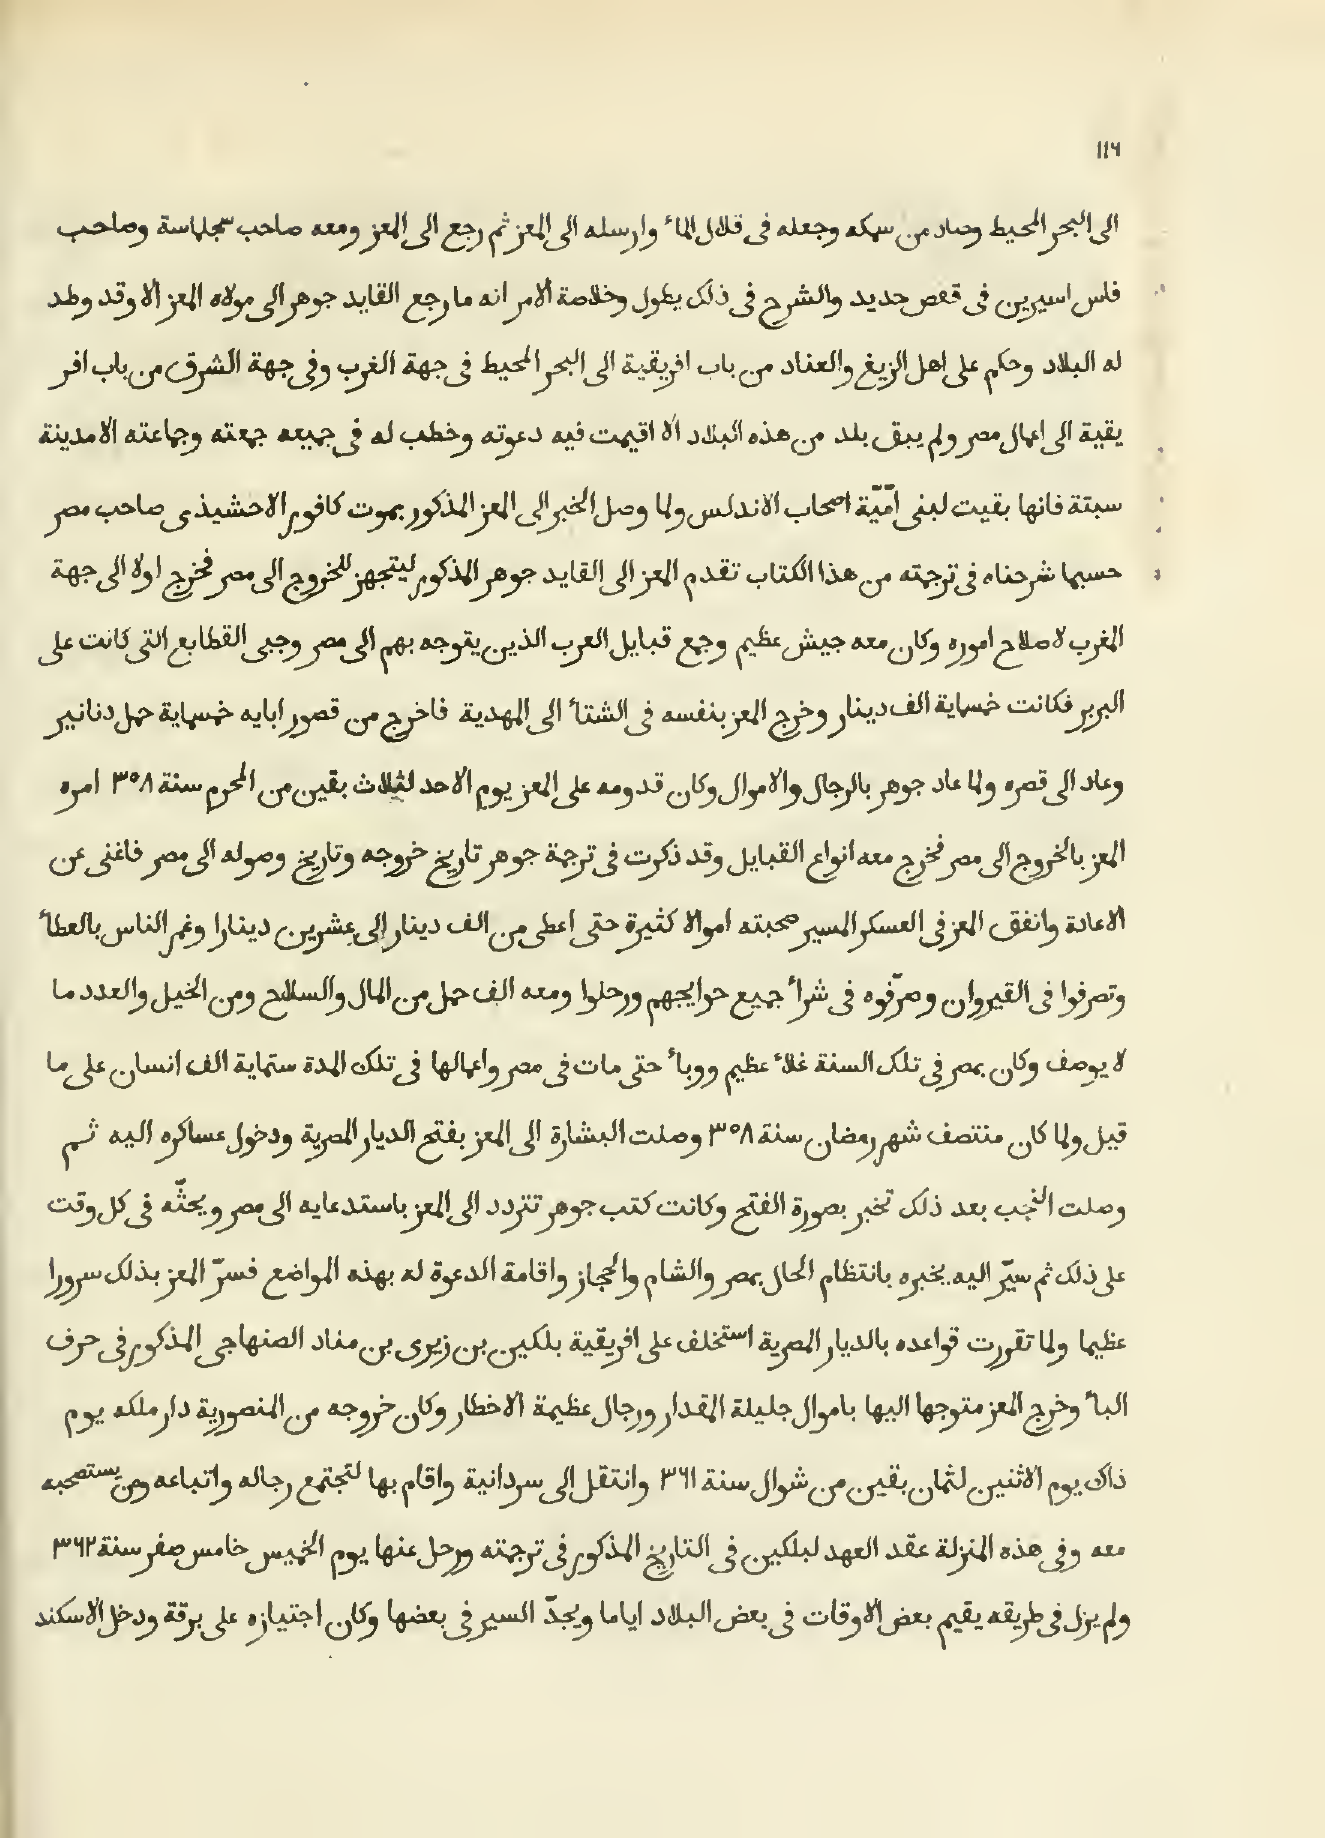 ١١٦
الى البحر المحيط وصاد من سمكه وجعله فى قلال الماء وارسله الى المعز ثم رجع الى المعز ومعه صاحب سجلماسة وصاحب
فاس اسيرين فى قفص حديد والشرح فى ذلك يطول وخلاصة الامر انه ما رجع القايد جوهر الى مولاه المعز الا وقد وطد
له البلاد وحكم على اهل الزيغ والعناد من باب افريقية الى البحر المحيط فى جهة الغرب وفى جهة الشرق من باب افر
يقية الى اعمال مصر ولم يبق بلد من هذه البلاد الا اقيمت فيه دعوته وخطب له فى جميعه جمعته وجماعته الا مدينة
سبتة فانها بقيت لبنى اميّة اصحاب الاندلس ولما وصل الخبر الى المعز المذكور بموت كافور الاخشيذى صاحب مصر
حسبما شرحناه فى ترجمته من هذا الكتاب تقدم المعز الى القايد جوهر المذكور ليتجهز للخروج الى مصر فخرج اولا الى جهة
المغرب لاصلاح اموره وكان معه جيش عظيم وجمع قبايل العرب الذين يتوجه بهم الى مصر وجبى القطايع التى كانت على
البربر فكانت خمسماية الف دينار وخرج المعز بنفسه فى الشتاء الى المهدية فاخرج من قصور ابايه خمسماية حمل دنانير
وعاد الى قصره ولما عاد جوهر بالرجال والاموال وكان قدومه على المعز يوم الاحد لثلاث بقين من المحرم سنة ٣٥٨ امره
المعز بالخروج الى مصر فخرج معه انواع القبايل وقد ذكرت فى ترجمة جوهر تاريخ خروجه وتاريخ وصوله الى مصر فاغنى عن
الاعادة وانفق المعز فى العسكر المسير صحبته اموالا كثيرة حتى اعطى من الف دينار الى عشرين دينارا وغمر الناس بالعطاء
وتصرفوا فى القيروان وصرّفوه فى شراء جميع حوايجهم ورحلوا ومعه الف حمل من المال والسلاح ومن الخيل والعدد ما
لا يوصف وكان بمصر فى تلك السنة غلاء عظيم ووباء حتى مات فى مصر واعمالها فى تلك المدة ستماية الف انسان على ما
قيل ولما كان منتصف شهر رمضان سنة ٣٥٨ وصلت البشارة الى المعز بفتح الديار المصرية ودخول عساكره اليه ثم
وصلت النجب بعد ذلك تخبر بصورة الفتح وكانت كتب جوهر تتردد الى المعز باستدعايه الى مصر ويحثّه فى كل وقت
على ذلك ثم سيّر اليه يخبره بانتظام الحال بمصر والشام والحجاز واقامة الدعوة له بهذه المواضع فسرّ المعز بذلك سرورا
عظيما ولما تقررت قواعده بالديار المصرية استخلف على افريقية بلكين بن زيرى بن مناد الصنهاجى المذكور فى حرف
الباء وخرج المعز متوجها اليها باموال جليلة المقدار ورجال عظيمة الاخطار وكان خروجه من المنصورية دار ملكه يوم
ذاك يوم الاثنين لثمان بقين من شوال سنة ٣٦١ وانتقل الى سردانية واقام بها لتجتمع رجاله واتباعه ومن يستصحبه
معه وفى هذه المنزلة عقد العهد لبلكين فى التاريخ المذكور فى ترجمته ورحل عنها يوم الخميس خامس صفر سنة ٣٦٢
ولم يزل فى طريقه يقيم بعض الاوقات فى بعض البلاد اياما ويجدّ السير فى بعضها وكان اجتيازه على برقة ودخل الاسكند